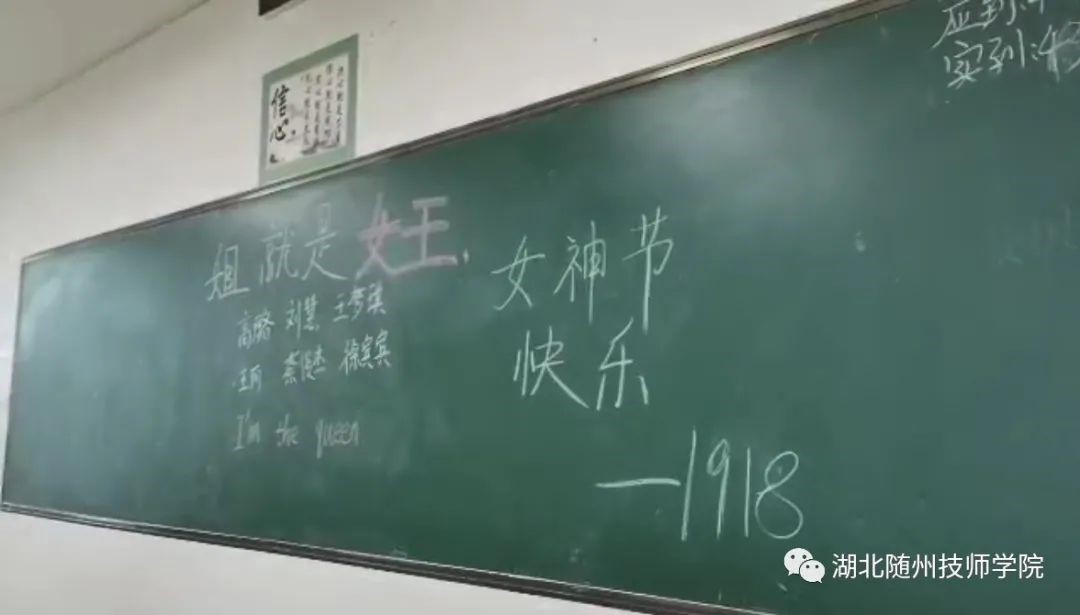 信心
应到:4
实到:43
姐就是女王.
高璐 刘慧 王梦琪
王丙 秦俊杰 徐宾宾
I'm the queen
女神节
快乐
—1918
湖北随州技师学院